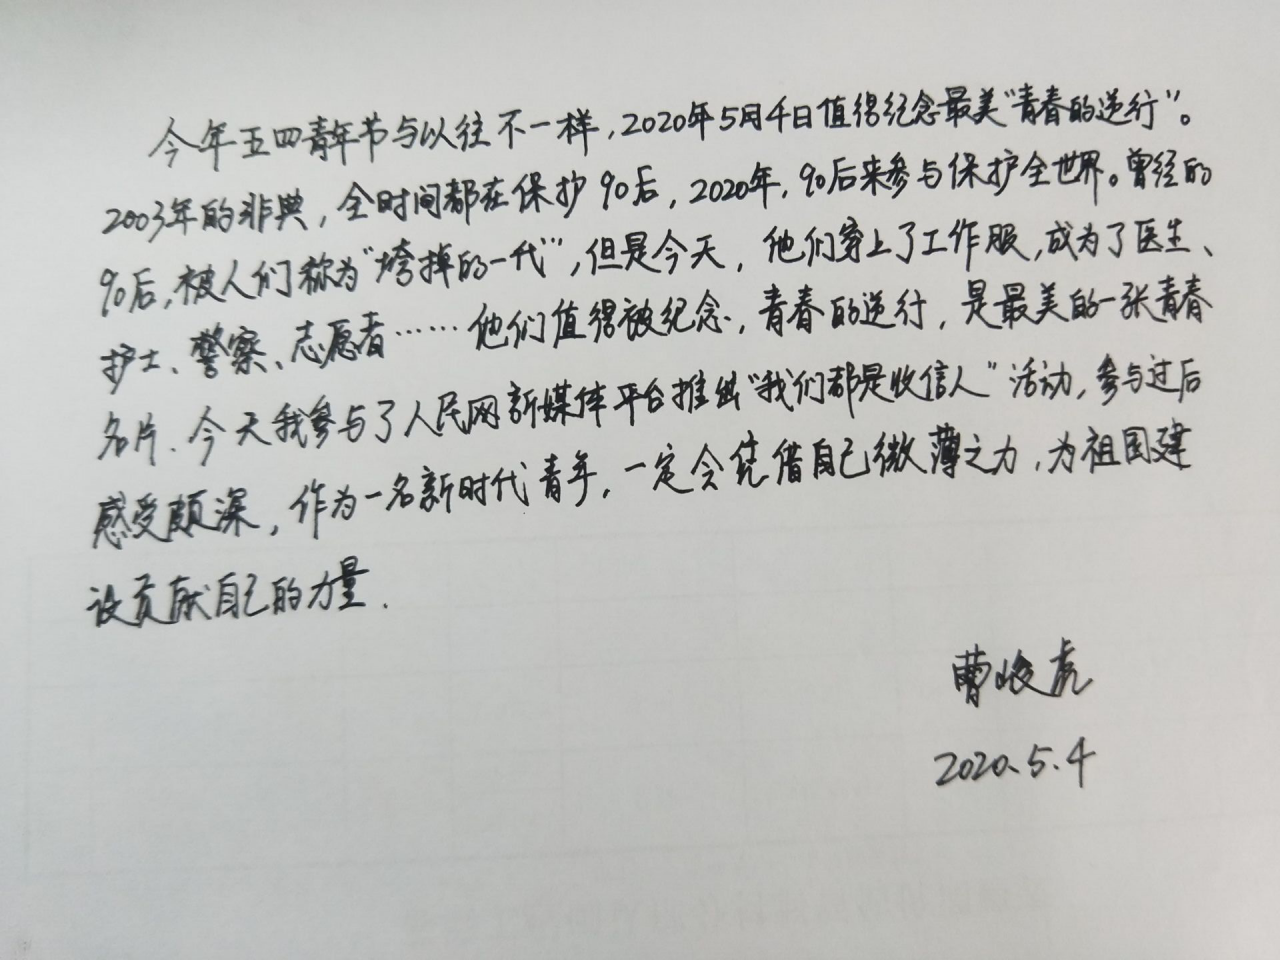 今年五四青年节与以往不一样,2020年5月4日值得纪念最美“青春的逆行”。
2003年的非典,全时间都在保护90后,2020年,90后来参与保护全世界。曾经的
90后,被人们称为“垮掉的一代”,但是今天,他们穿上了工作服,成为了医生、
护士、警察、志愿者……他们值得被纪念,青春的逆行,是最美的一张青春
名片.今天我参与了人民网新媒体平台推出“我们都是收信人”活动,参与过后
感受颇深,作为一名新时代青年,一定会凭借自己微薄之力,为祖国建
设贡献自己的力量.
曹峻虎
2020.5.4